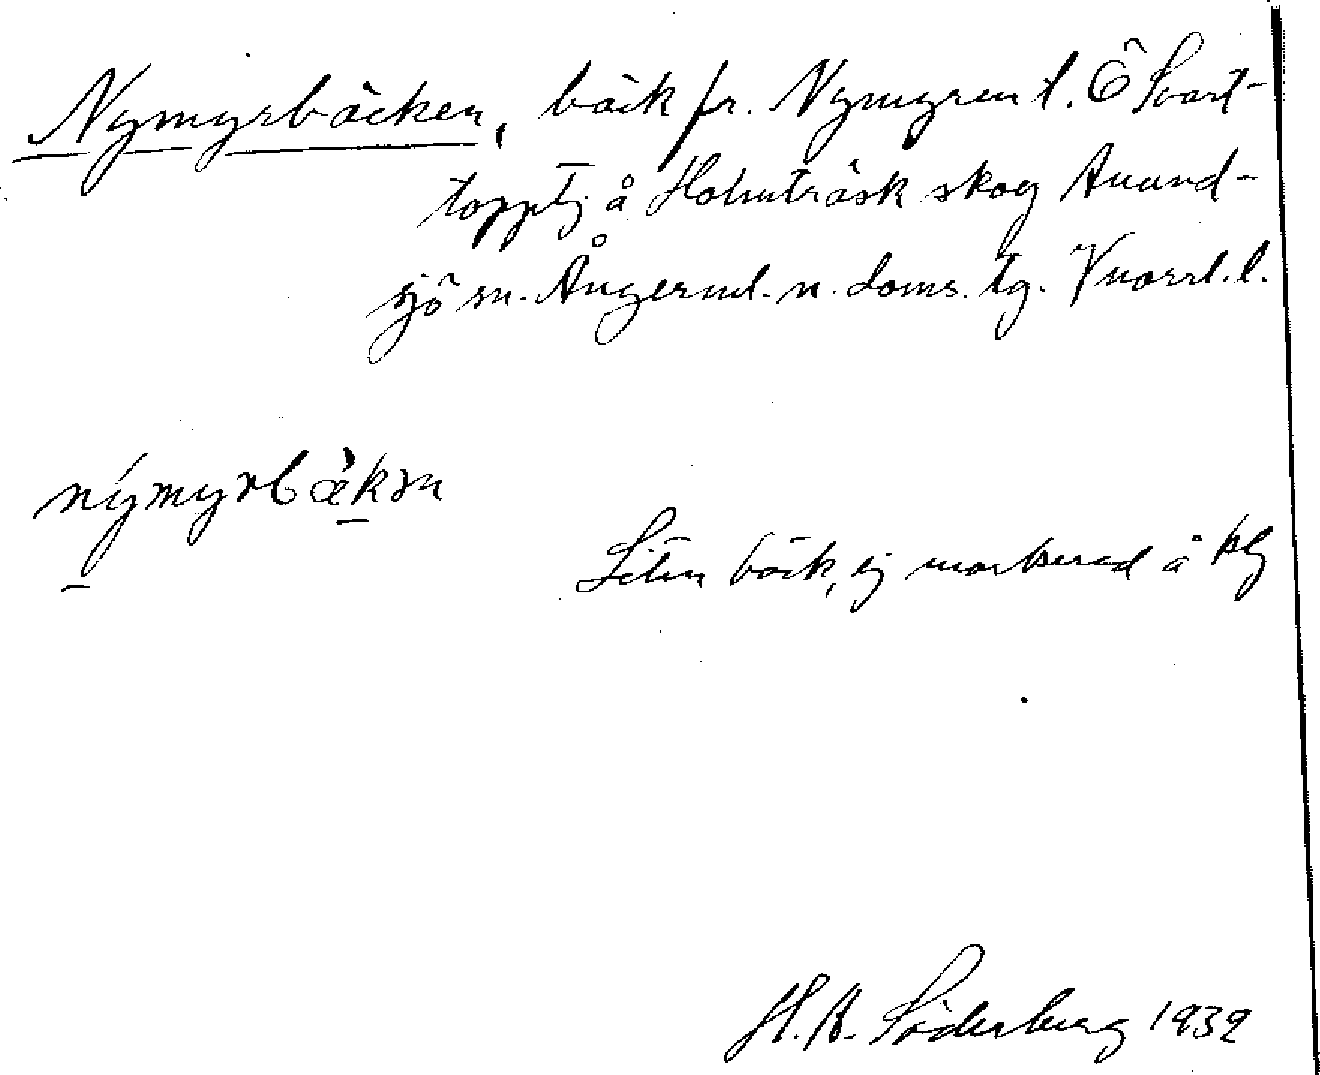 Nymyrbäcken, bäck fr. Nymyren t. Ö Svart-
topptj å Holmträsk skog Anund-
sjö sn. Ångerml. n. doms. tg. Vnorrl. l.
nýmyrbæ̀kən
Liten bäck, ej markerad å kbl
H. A. Söderberg 1932